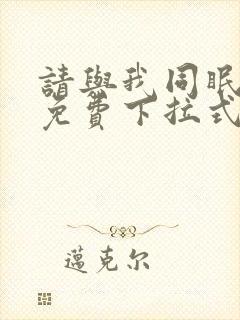 請與我同眠
免費下拉式
邁克尔